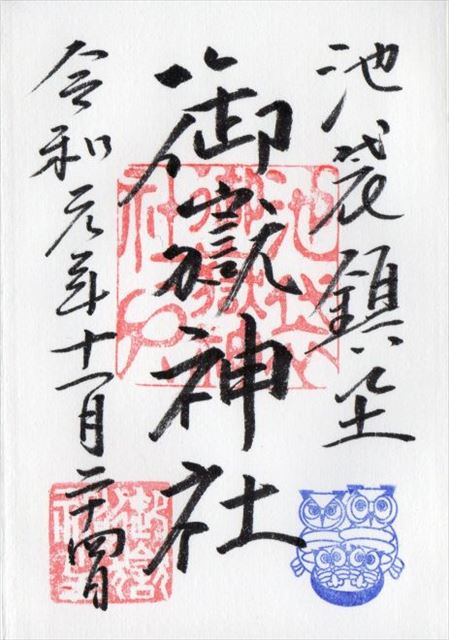 池袋鎮座
御嶽神社
令和元年十一月二十四日